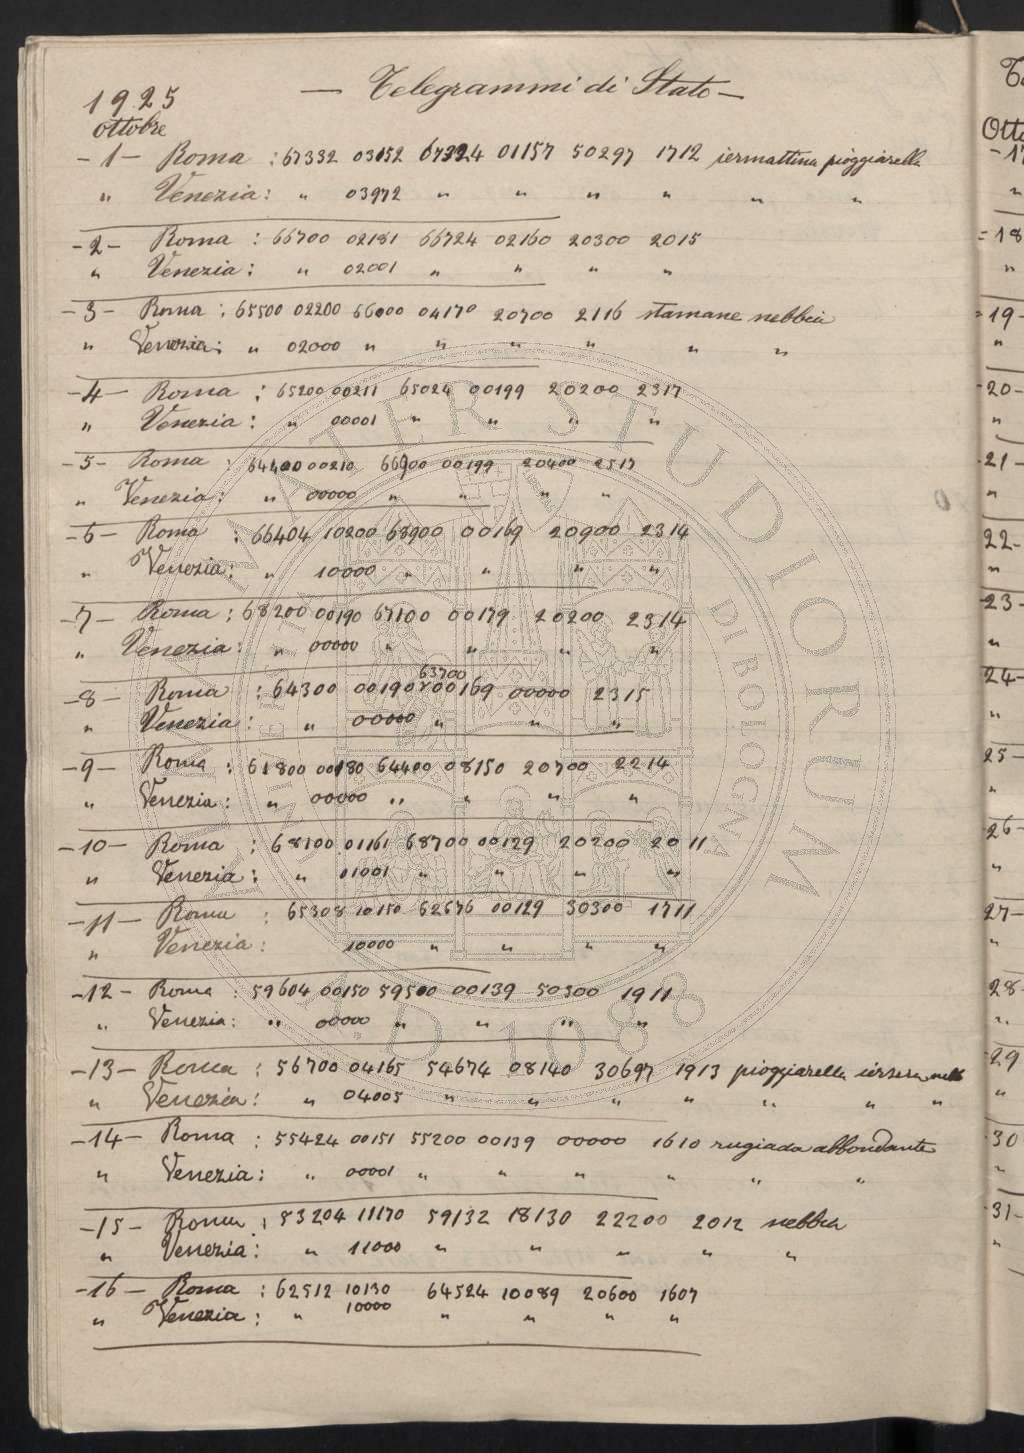 1925
— Telegrammi di Stato —
ottobre
-1- Roma : 67332 03152 67324 01157 50297 1712 iermattina pioggiarella
" Venezia : " 03972 " " " " " "
-2- Roma : 66700 02181 66724 02160 20300 2015
" Venezia : " 02001 " " " "
-3- Roma : 65500 02200 66000 04170 20700 2116 stamane nebbia
" Venezia : " 02000 " " " " " "
-4- Roma : 65200 00211 65024 00199 20200 2317
" Venezia : " 00001 " " " "
-5- Roma : 64400 00210 66900 00199 20400 2517
" Venezia : " 00000 " " " "
-6- Roma : 66404 10200 68900 00169 20900 2314
" Venezia : " 10000 " " " "
-7- Roma : 68200 00190 67100 00179 20200 2314
" Venezia : " 00000 " " " "
63700
-8- Roma : 64300 00190 00169 00000 2315
" Venezia : " 00000 " " "
-9- Roma : 61800 00180 64400 08150 20700 2214
" Venezia : " 00000 " " " "
-10- Roma : 68100 01161 68700 00129 20200 2011
" Venezia : " 01001 " " " "
-11- Roma : 65308 10150 62676 00129 30300 1711
" Venezia : 10000 " " " "
-12- Roma : 59604 00150 59500 00139 50300 1911
" Venezia : " 00000 " " " "
-13- Roma : 56700 04165 54674 08140 30697 1913 pioggiarella iersera
" Venezia : " 04005 " " " " " " "
-14- Roma : 55424 00151 55200 00139 00000 1610 rugiada abbondante
" Venezia : " 00001 " " " " " "
-15- Roma : 53204 11170 59132 18130 22200 2012 nebbia
" Venezia : " 11000 " " " " "
-16- Roma : 62512 10130 64524 10089 20600 1607
" Venezia : " 10000 " " " "
Otto
-17
"
=18
"
-19-
"
-20-
"
-21-
"
22-
"
-23-
"
24-
"
25-
"
-26-
"
27-
"
28-
"
29
"
30
"
-31-
"
ALMA MATER STUDIORUM
UNIVERSITÀ DI BOLOGNA
A.D. 1088